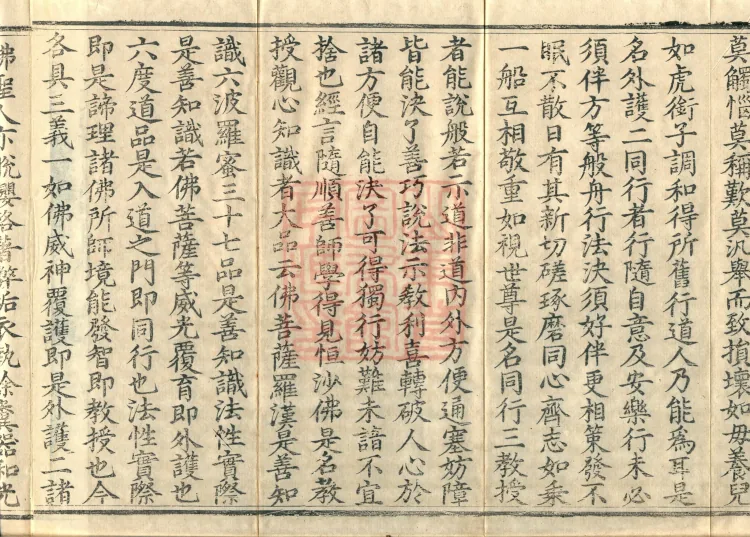 莫觸惱莫稱歎莫汎舉而致損壞如毋養兒
如虎銜子調和得所舊行道人乃能為耳是
名外護二同行者行隨自意及安樂行未必
須伴方等般舟行法決須好伴更相策發不
眠不散日有其新切磋琢磨同心齊志如乘
一船互相敬重如視世尊是名同行三教授
者能說般若示道非道內外方便通塞妨障
皆能決了善巧說法示教利喜轉破人心於
諸方便自能決了可得獨行妨難未諳不宜
捨也經言隨順善師學得見恒沙佛是名教
授觀心知識者大品云佛菩薩羅漢是善知
識六波羅蜜三十七品是善知識法性實際
是善知識若佛菩薩等威光覆育即外護也
六度道品是入道之門即同行也法性實際
即是諦理諸佛所師境能發智即教授也今
各具三義一如佛威神覆護即是外護二諸
佛聖人亦脫瓔珞著弊垢衣執除糞器和光